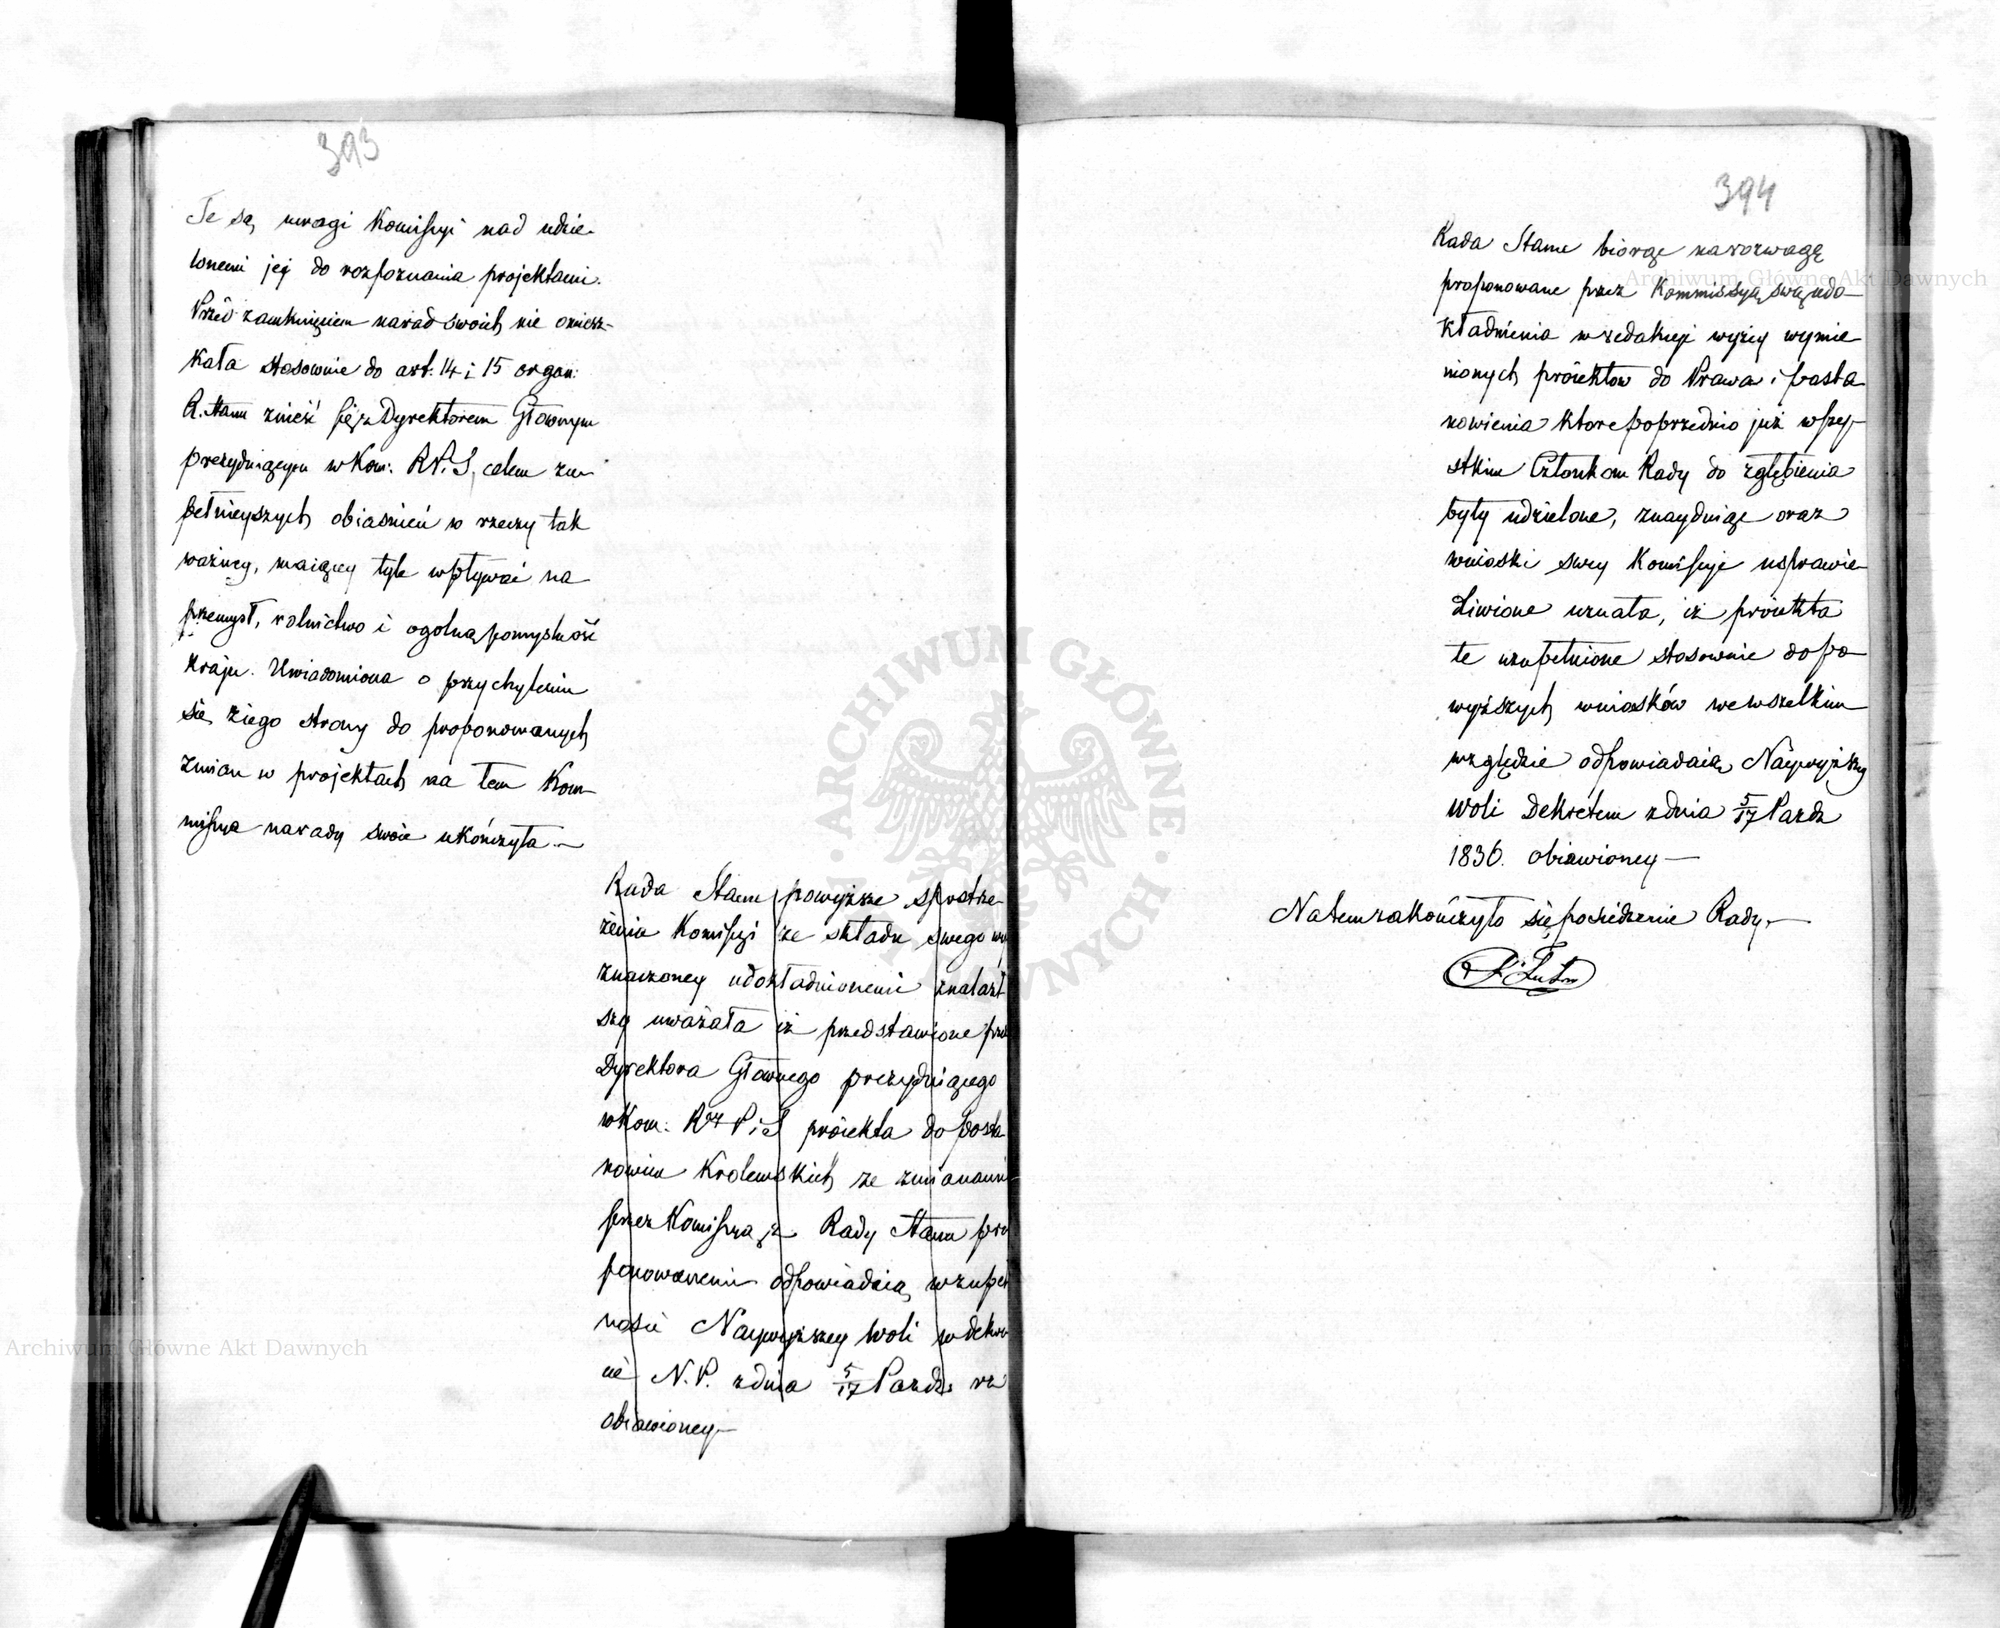 393
Te są uwagi Komissyi nad udzie-
lonemi jej do rozpoznania projektami.
Przed zamknięciem narad swoich nie omiesz-
kała stosownie do art: 14 i 15 organ:
R. Stanu znieść się z Dyrektorem Głownym
prezyduiącym w Kom: R.P.S, celem zu-
pełnieyszych obiasnień w rzeczy tak
ważney, maiącey tyle wpływać na
przemysł, rolnictwo i ogolną pomyslność
kraju. Uwiadomiona o przychyleniu
się z iego strony do proponowanych
zmian w projektach na tem Kom-
missya narady swoie ukończyła.—
Rada Stanu powyższe spostrze-
żenia Komissyi ze składu swego wy
znaczoney udokładnionemi znalazł
szy uważała iż przedstawione prze
Dyrektora Głownego prezyduiącego
w Kom: Rzz P. i S proiekta do posta
nowien Krolewskich ze zmianami
przez Komissyą z Rady Stanu pro
ponowanemi odpowiadaią w zupeł
ności Naywyższey woli w dekre
cie N.P. z dnia 5/17 Pazdz. rz
obiawioney—
394
Rada Stanu biorąc na rozwagę
proponowane przez Kommissyą swą udo-
kładnienia w redakcyi wyżey wymie
nionych proiektow do Prawa i posta
nowienia ktore poprzednio już wszy-
stkim Członkom Rady do zgłębienia
były udzielone, znayduiąc oraz
wnioski swey Komissyi usprawie
dliwione uznała, iż proiekta
te uzupełnione stosownie do po
wyższych wniosków we wszelkim
względzie odpowiadaią Naywyższey
woli Dekretem z dnia 5/17 Pazdz
1836. obiawioney—
Na tem zakończyło się posiedzenie Rady.—
Archiwum Główne Akt Dawnych
Archiwum Główne Akt Dawnych
ARCHIWUM GŁÓWNE AKT DAWNYCH